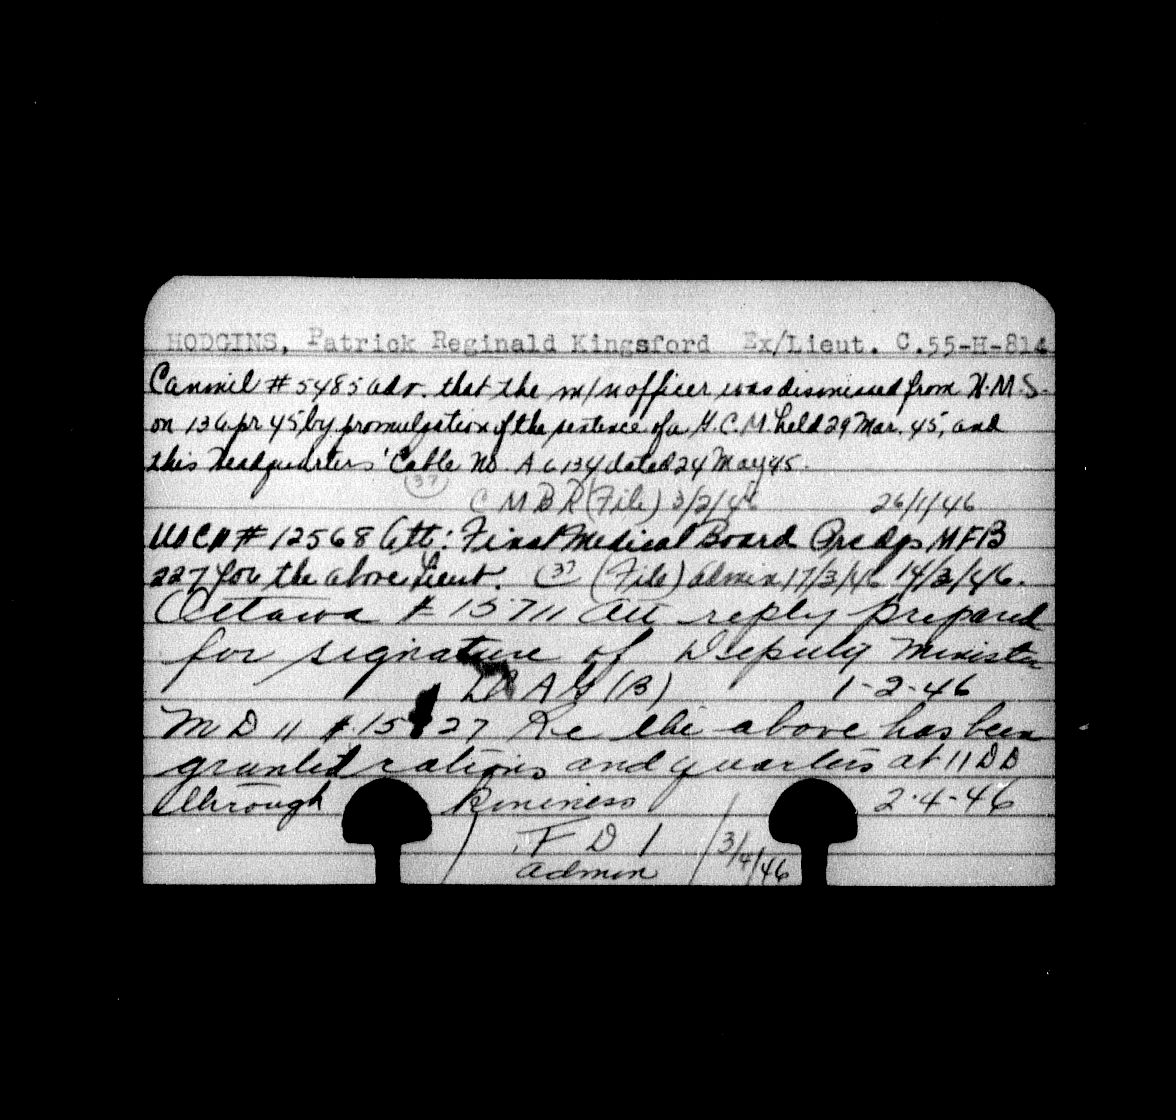 HODGINS, Patrick Reginald Kingsford Ex/Lieut. C.55-H-814
Canmil # 5485 adv. that the m/n officer was dismissed from H.M.S.
on 13 Apr 45 by promulgation of the sentence of a G.C.M. held 29 Mar. 45, and
this Headquarters' Cable No. A 6134 dated 24 May 45.
(37)
C M B R (File) 3/2/46 26/1/46
# 12568 Att: Final Medical Board MFB
227 for the above Lieut. (37) (File) Admin 17/3/46 14/3/46.
Ottawa # 15711 Att reply prepared
for signature of Deputy Minister
A G (B) 1-2-46
M D 11 # 15 27 Re the above has been
granted rations and quarters at 11 D D
through 2-4-46
F D 1 3/4/46
admin